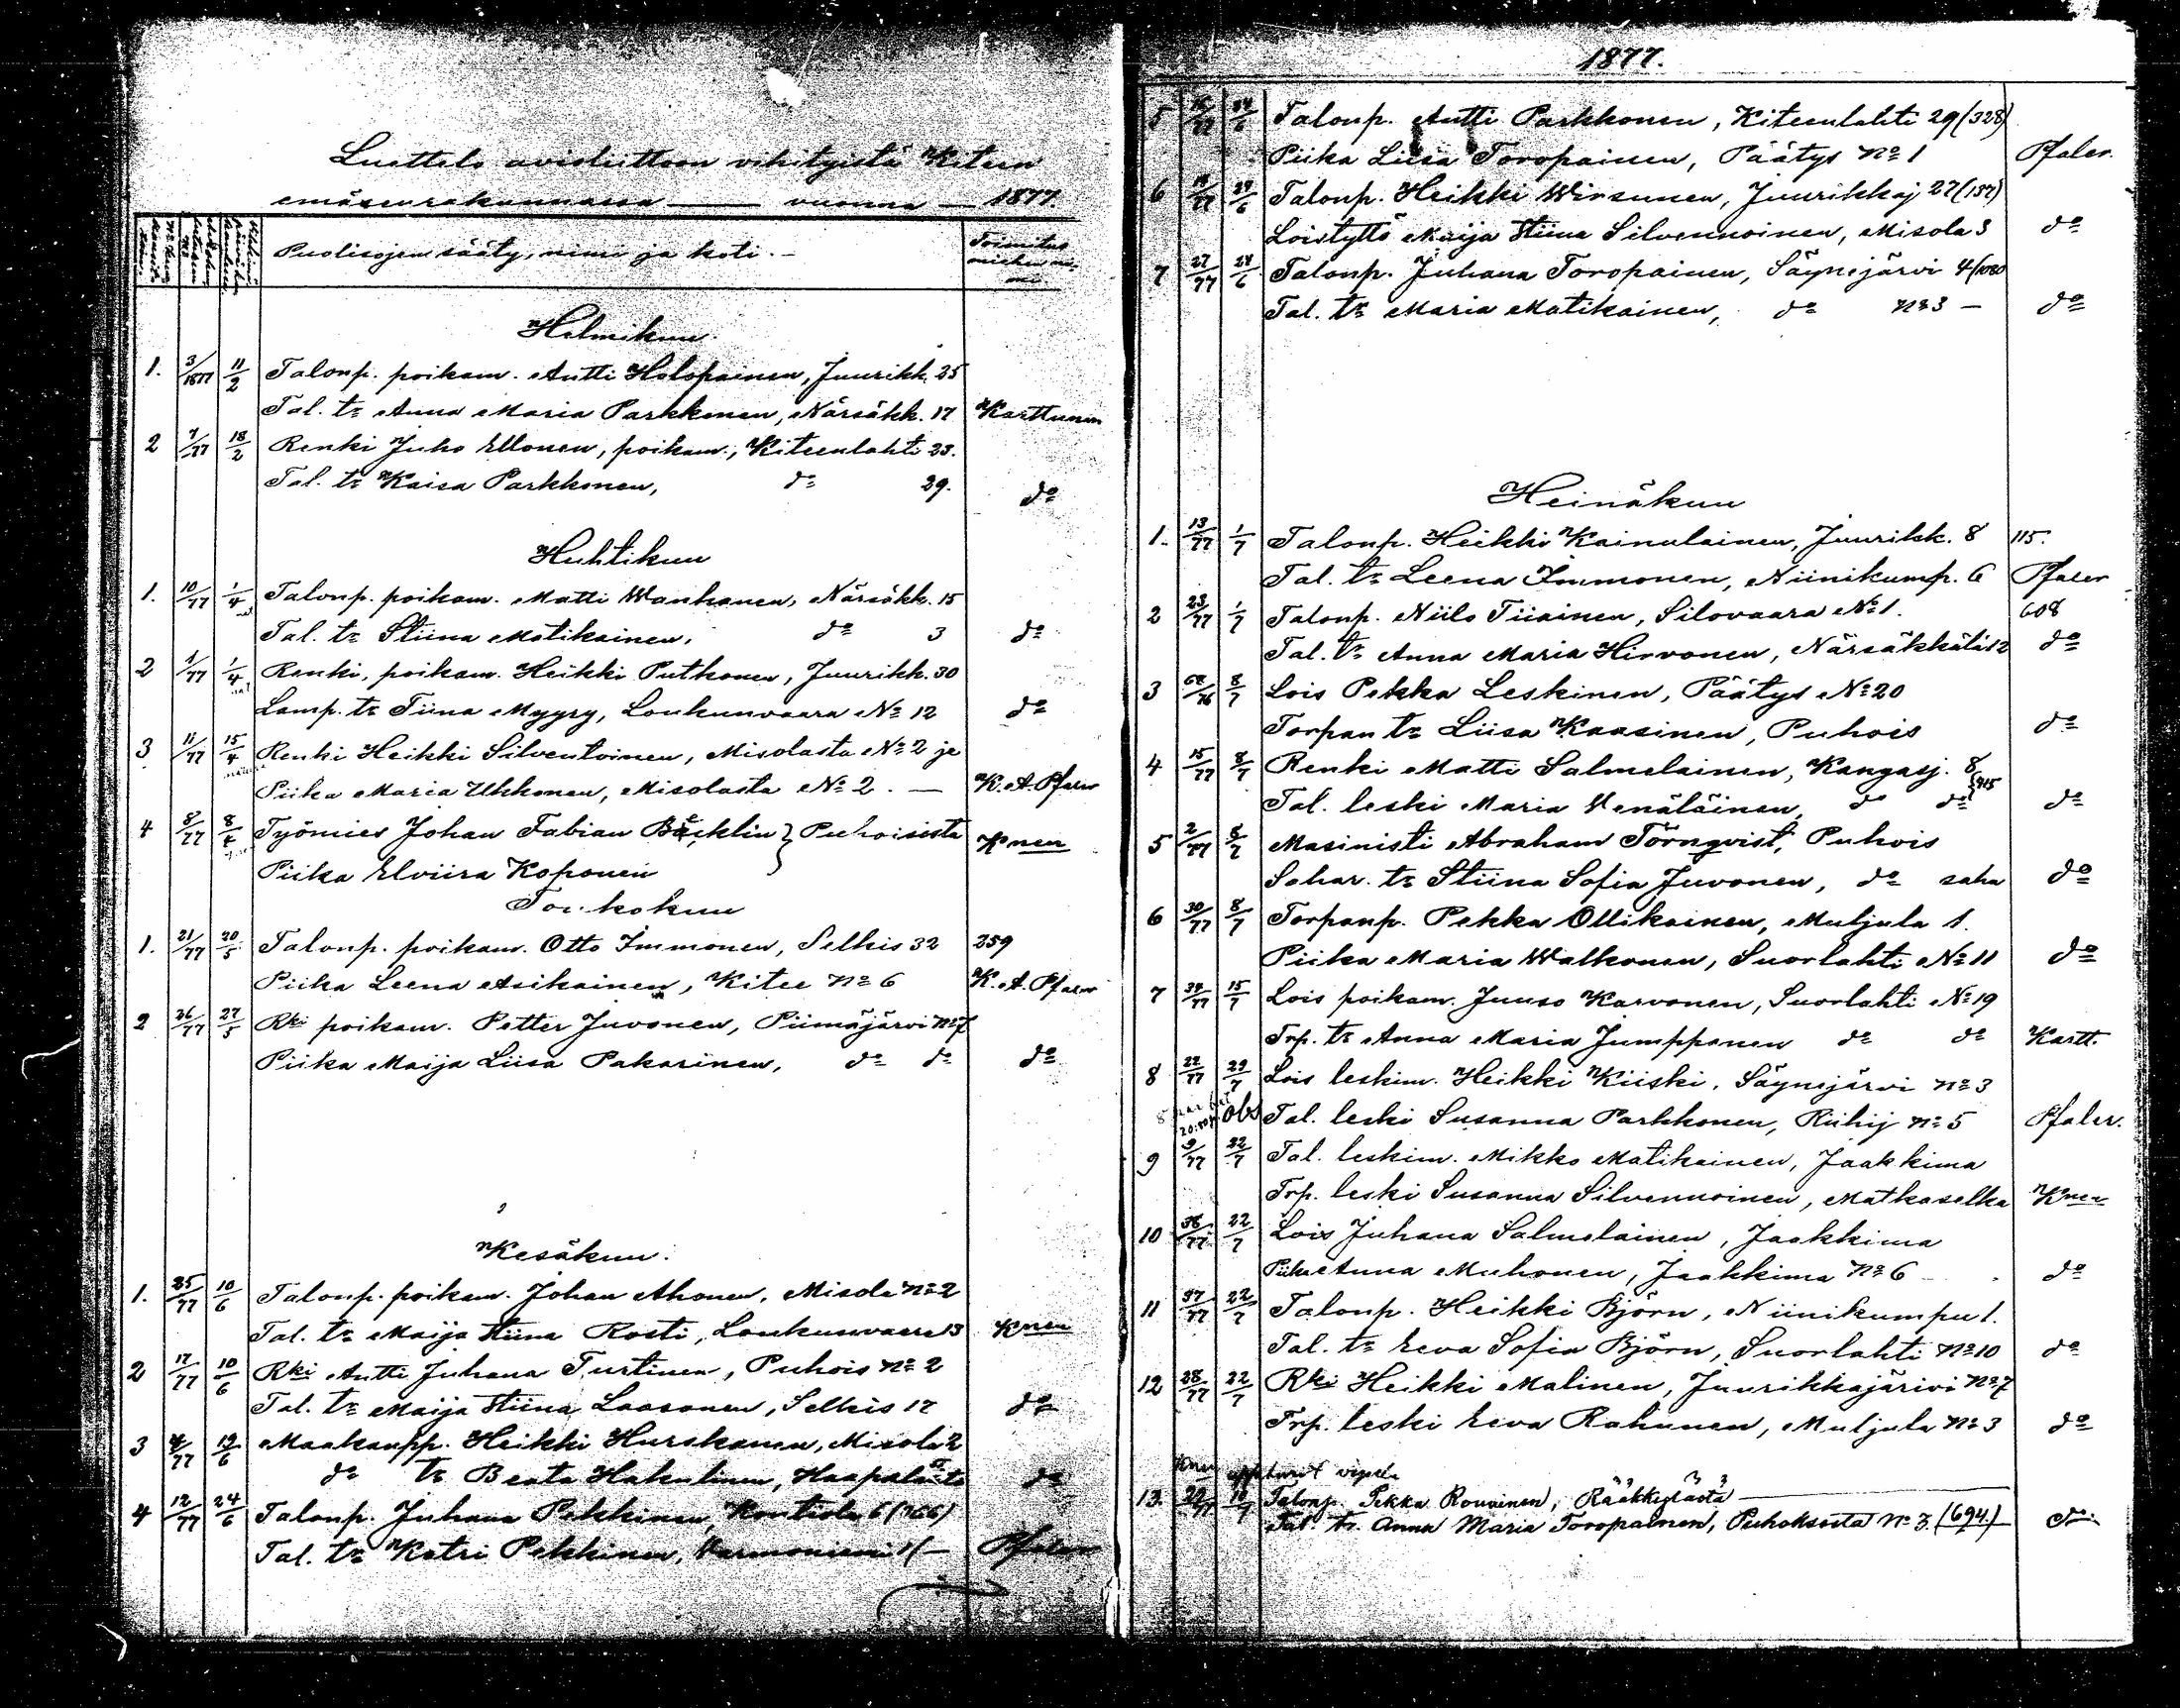 Luettelo avioliittoon vihityistä Kiteen
emäseurakunnassa — vuonna — 1877.
Puolisojen sääty, nimi ja koti. —
Toimitus miehen nimi.
Helmikuu.
1. 3/1877 11/2 Talonp. poikam. Antti Holopainen, Juurikk. 25
Tal. tr Anna Maria Parkkonen, Närsäkk. 17 Karttunen
2 7/77 18/2 Renki Juho Ellonen, poikam., Kiteenlahti 23.
Tal. tr Kaisa Parkkonen, do 29. do
Huhtikuu
1. 10/77 1/4 Talonp. poikam. Matti Wanhanen, Närsäkk. 15
Tal. tr Stiina Matikainen, do 3 do
2 1/77 1/4 Renki, poikam. Heikki Putkonen, Juurikk. 30
Lamp. tr Tiina Myyry, Loukunvaara No 12 do
3 11/77 15/4 Renki Heikki Silventoinen, Misolasta No 2 ja
Piika Maria Uhkonen, Misolasta No 2. — K. A. Pfaler
4 8/77 8/4 Työmies Johan Fabian Bäcklin } Puhoisista Knen
Piika Elviira Koponen
Toukokuu
1. 21/77 20/5 Talonp. poikam. Otto Immonen, Selkis 32 259
Piika Leena Asikainen, Kitee No 6 K. A. Pfaler
2 26/77 27/5 Rki poikam. Petter Juvonen, Piimäjärvi No 7
Piika Maija Liisa Pakarinen, do do do
Kesäkuu.
1. 35/77 10/6 Talonp. poikam. Johan Ahonen, Misola No 2
Tal. tr Maija Stiina Rosti, Loukunvaara 13 Knen
2 17/77 10/6 Rki Antti Juhana Turtinen, Puhois No 2
Tal. tr Maija Stiina Laasonen, Selkis 17 do
3 /77 19/6 Maakaupp. Heikki Hurskanen, Misola 2
do tr Beata Hakulinen, do
4 12/77 24/6 Talonp. Juhana Pekkinen, Kontiola 6 (766)
Tal. tr Katri Pekkinen, Varmoniemi 1/— Pfaler
1877.
5 24/6 Talonp. Antti Parkkonen, Kiteenlahti 29 (328)
Piika Liisa Toropainen, Päätys No 1 Pfaler.
6 24/6 Talonp. Heikki Wirsunen, Juurikkaj 27 (137)
Loistyttö Maija Stiina Silvennoinen, Misola 3 do
7 27/77 24/6 Talonp. Juhana Toropainen, Säynejärvi 4/
Tal. tr Maria Matikainen, do No 3 — do
Heinäkuu
1. 13/77 1/7 Talonp. Heikki Kainulainen, Juurikk. 8 115.
Tal. tr Leena Immonen, Niinikump. 6 Pfaler
2 23/77 1/7 Talonp. Niilo Tiiainen, Silovaara No 1. 608
Tal. tr Anna Maria Hirvonen, Närsäkkälä 12 do
3 /76 8/7 Lois Pekka Leskinen, Päätys No 20
Torpan tr Liisa Kaasinen, Puhois do
4 15/77 8/7 Renki Matti Salmelainen, Kangasj. 8
Tal. leski Maria Venäläinen, do do } 915 do
5 2/77 8/7 Masinisti Abraham Törnqvist, Puhois
Sahar. tr Stiina Sofia Juvonen, do saha do
6 30/77 8/7 Torpanp. Pekka Ollikainen, Muljula 1.
Piika Maria Walkonen, Suorlahti No 11 do
7 34/77 15/7 Lois poikam. Juuso Karvonen, Suorlahti No 19
Trp. tr Anna Maria Jumpponen do do Kartt.
8 22/77 29/7 Lois leskim. Heikki Kiiski, Säynejärvi No 3
obs Tal. leski Susanna Parkkonen, Riihij No 5 Pfaler.
9 9/77 22/7 Tal. leskim. Mikko Matikainen, Jaakkima
Trp. leski Susanna Silvennoinen, Matkaselka Knen
10 38/77 22/7 Lois Juhana Salmelainen, Jaakkima
Piika Anna Muhonen, Jaakkima No 6 do
11 37/77 22/7 Talonp. Heikki Björn, Niinikumpu 1.
Tal. tr Eeva Sofia Björn, Suorlahti No 10 do
12 28/77 22/7 Rki Heikki Malinen, Juurikkajärivi No 7
Trp. leski Eeva Rahunen, Muljula No 3 do
13. Talonp. Pekka Rouvinen, Rääkkylästä
Tal. tr. Anna Maria Toropainen, Puhoksesta No 3. (694) do